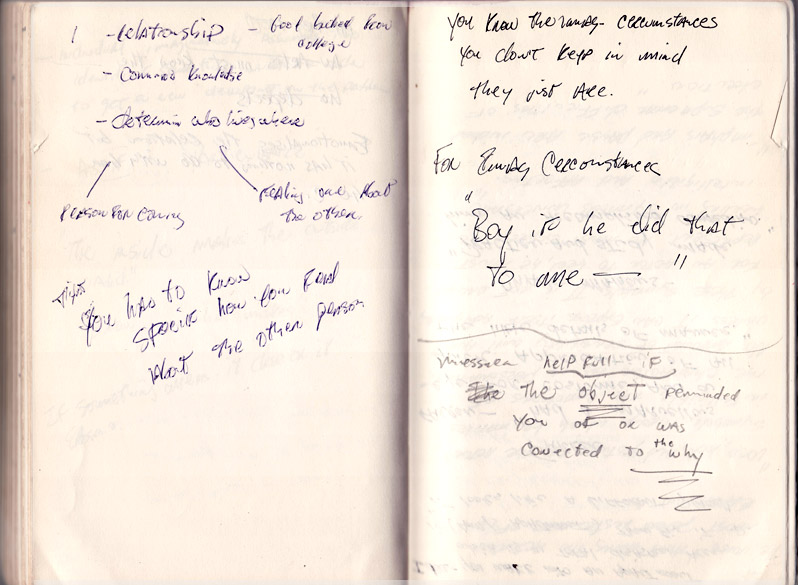 1 - Relationship - Good friend from college
- Common Knowledge
- Determin who lives where
REASON FOR Coming
Feeling one About the other.
You has to know
Specific how you Feel
About the other person
you know the circumstances
you don't keep in mind
they just are.
For Circumstances
"Boy if he did that
to me — "
help full if
the object reminded
you of or was
conected to the why